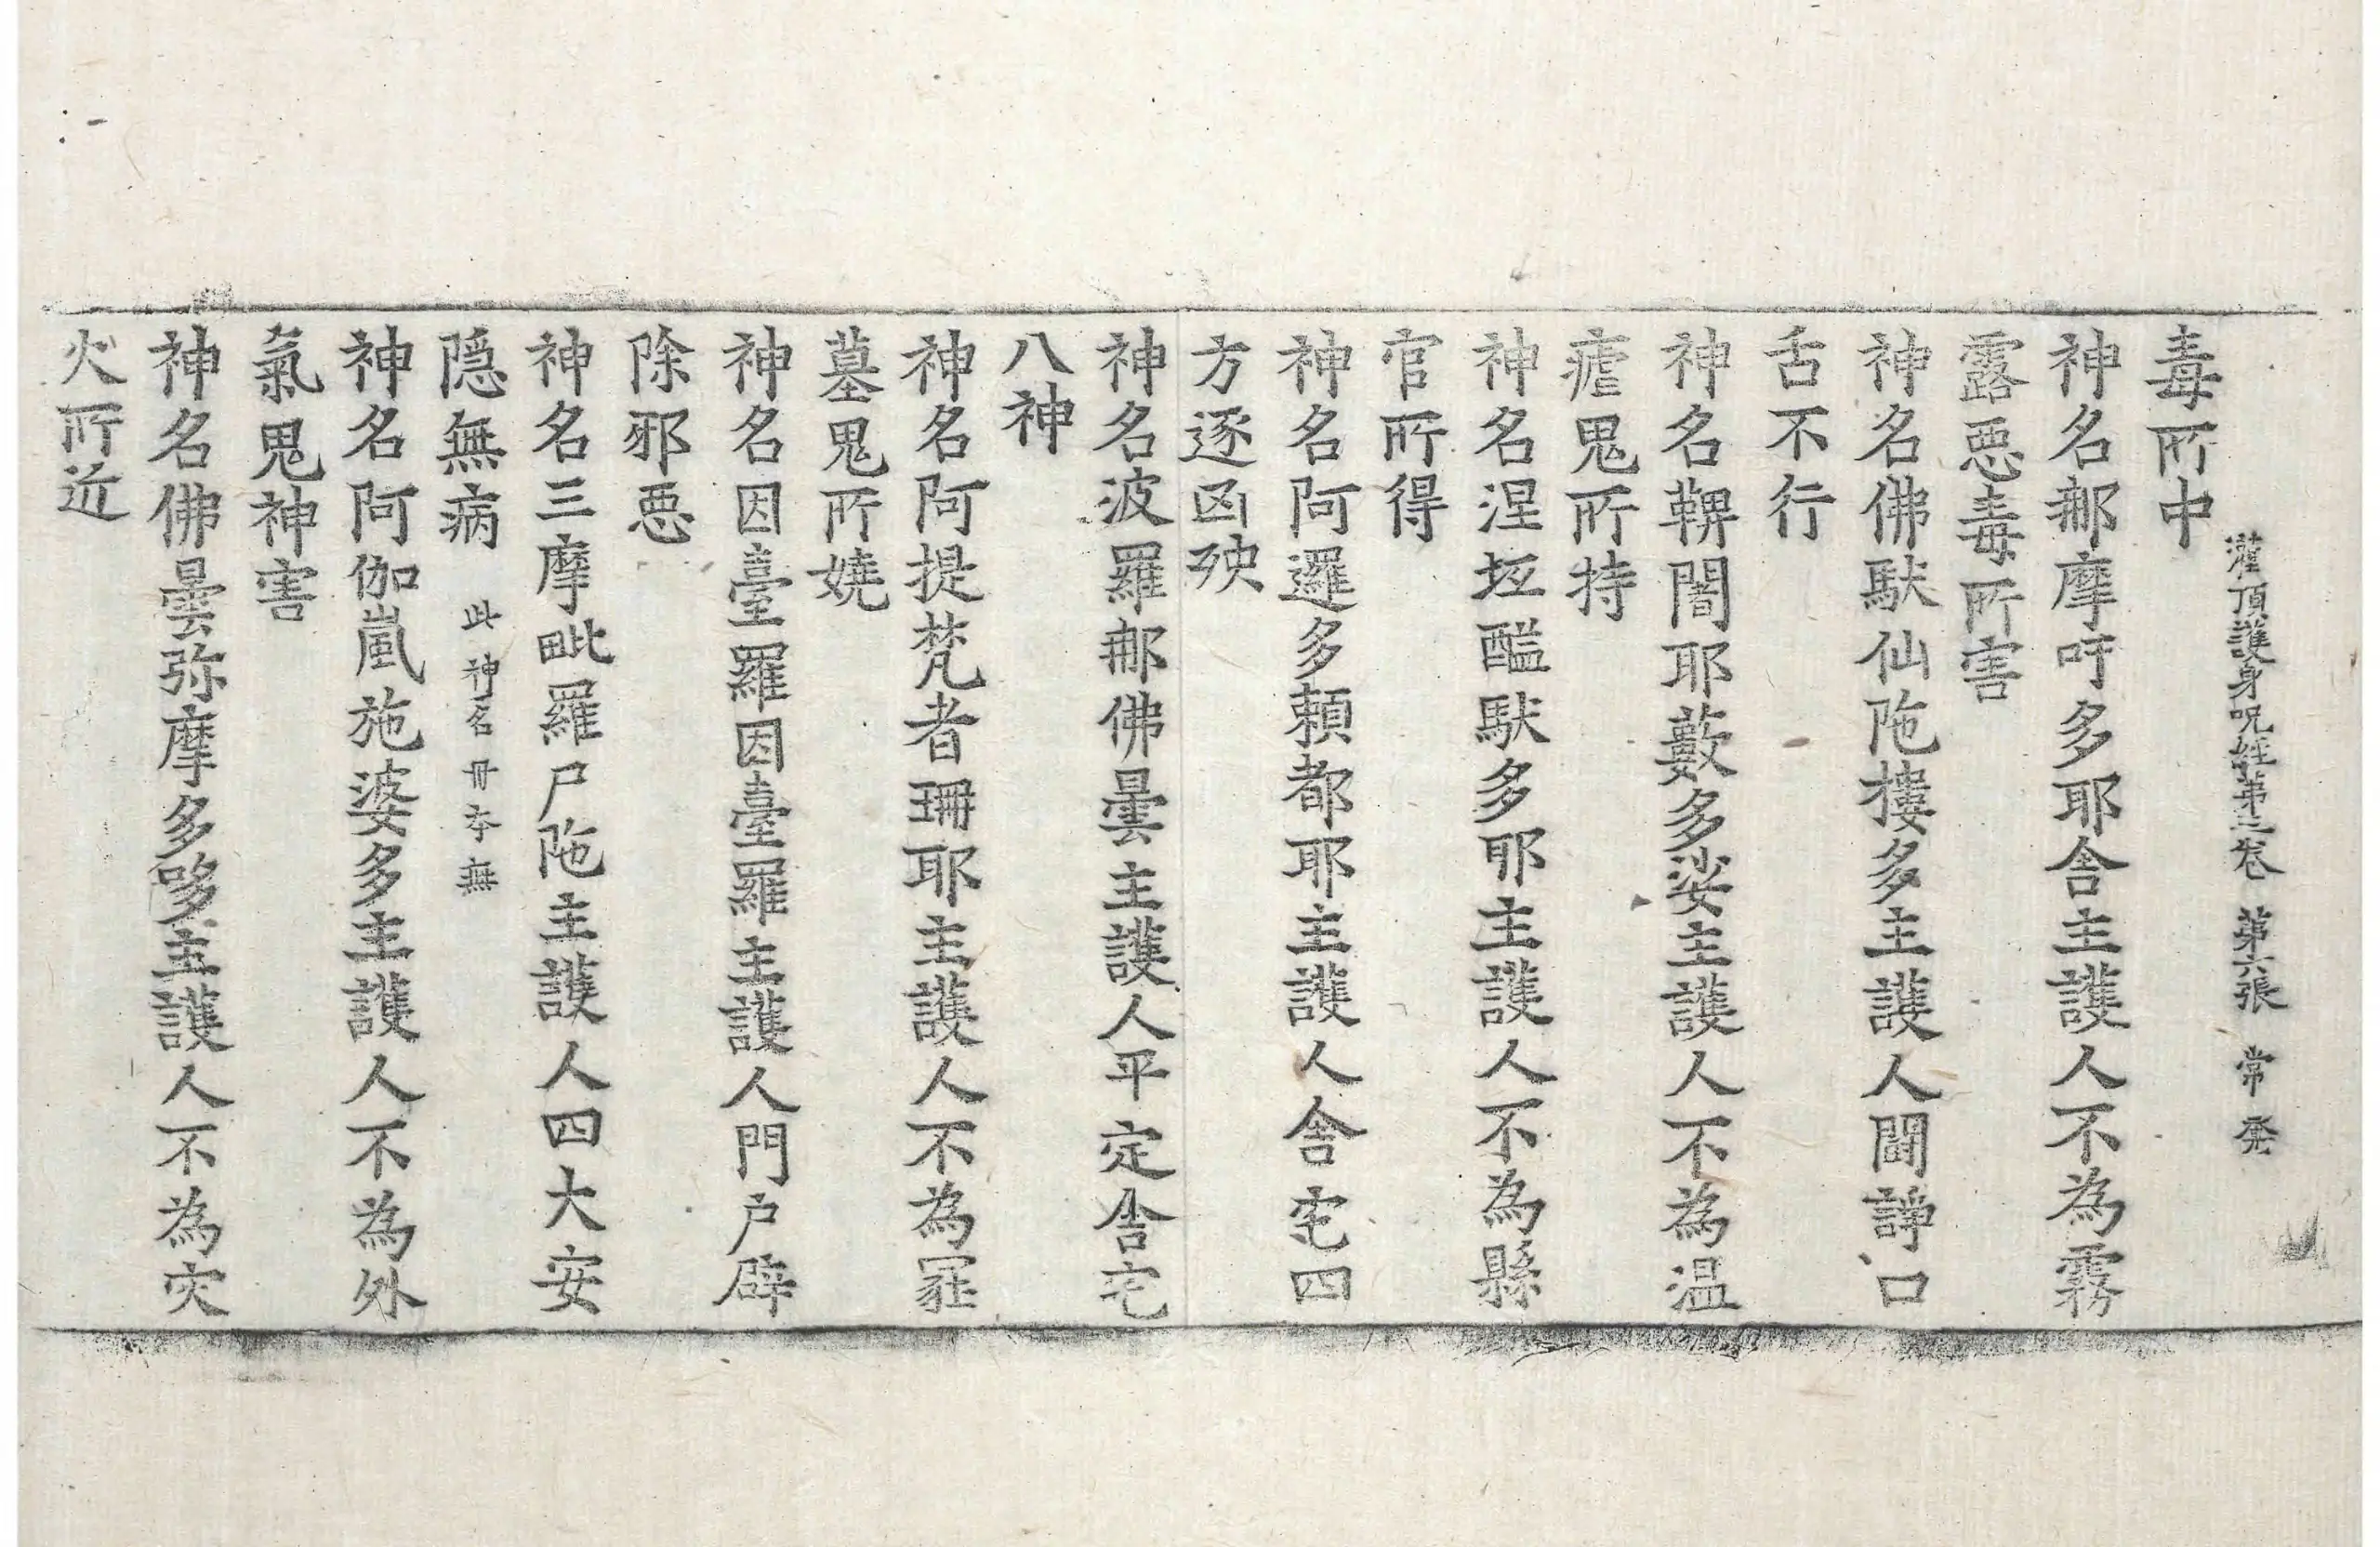 毒所中
灌頂護身呪経第三卷 第六張 常
神名那摩吁多耶舍主護人不為霧
露惡毒所害
神名佛馱仙陁樓多主護人鬪諍口
舌不行
神名鞞闍耶藪多娑主護人不為温
瘧鬼所持
神名涅坻醯馱多耶主護人不為縣
官所得
神名阿邏多頼都耶主護人舍宅四
方逐凶殃
神名波羅那佛曇主護人平定舍宅
八神
神名阿提梵者珊耶主護人不為冡
墓鬼所嬈
神名因臺羅因臺羅主護人門户辟
除邪惡
神名三摩毗羅尸陁主護人四大安
隱無病 此神名丹本無
神名阿伽嵐施婆多主護人不為外
氣鬼神害
神名佛曇弥摩多哆主護人不為灾
火所近